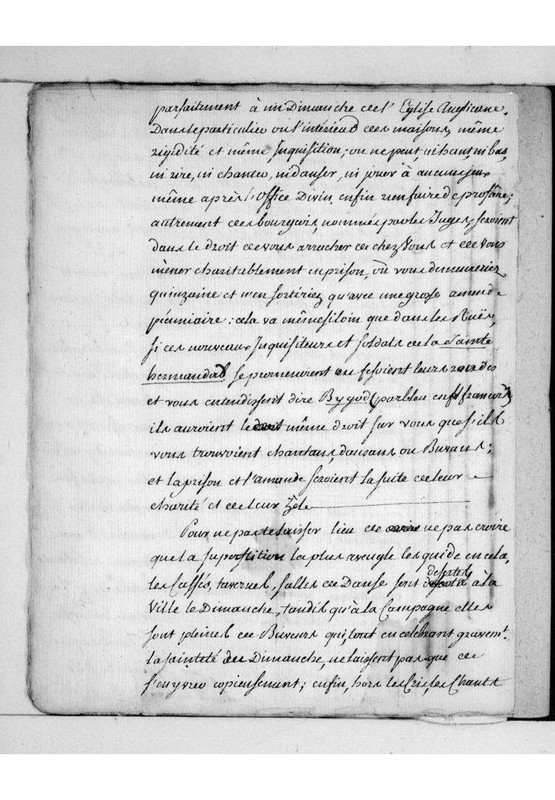 parfaitement à un Dimanche de l'Eglise Anglicane.
Dans le particulier ou l'intérieur des maisons, même
rigidité et même Inquisition; on ne peut, ni haut, ni bas,
ni rire, ni chanter, ni danser, ni jouer à aucun jeu
même après l'Office Divin, enfin rien faire de profane;
autrement des bourgeois, nommés par les Juges, seroient
dans le droit de vous arracher de chez vous et de vous
mener charitablement en prison, où vous demeureriez
quinzaine et n'en sortiriez qu'avec une grosse amende
pécuniaire: cela va même si loin que dans les Rues,
si ces nouveaux Inquisiteurs et soldats de la Sainte
hermandad se promenoient ou fesoient leurs rondes
et vous entendissent dire By god (parbleu en françois)
ils auroient le même droit sur vous que s'ils
vous trouvoient chantans, dansans ou Buvans;
et la prison et l'amande seroient la suite de leur
charité et de leur Zèle
Pour ne pas laisser lieu de ne pas croire
que la superstition la plus aveugle les guide en cela,
les Caffés, tavernes, salles de Danse sont déserts à la
Ville le Dimanche, tandis qu'à la Campagne elles
sont pleines de Buveurs qui, tout en célébrant gravemt.
la sainteté du Dimanche, ne laissent pas que de
s'enyvrer copieusement; enfin, hors les Cris, les Chants